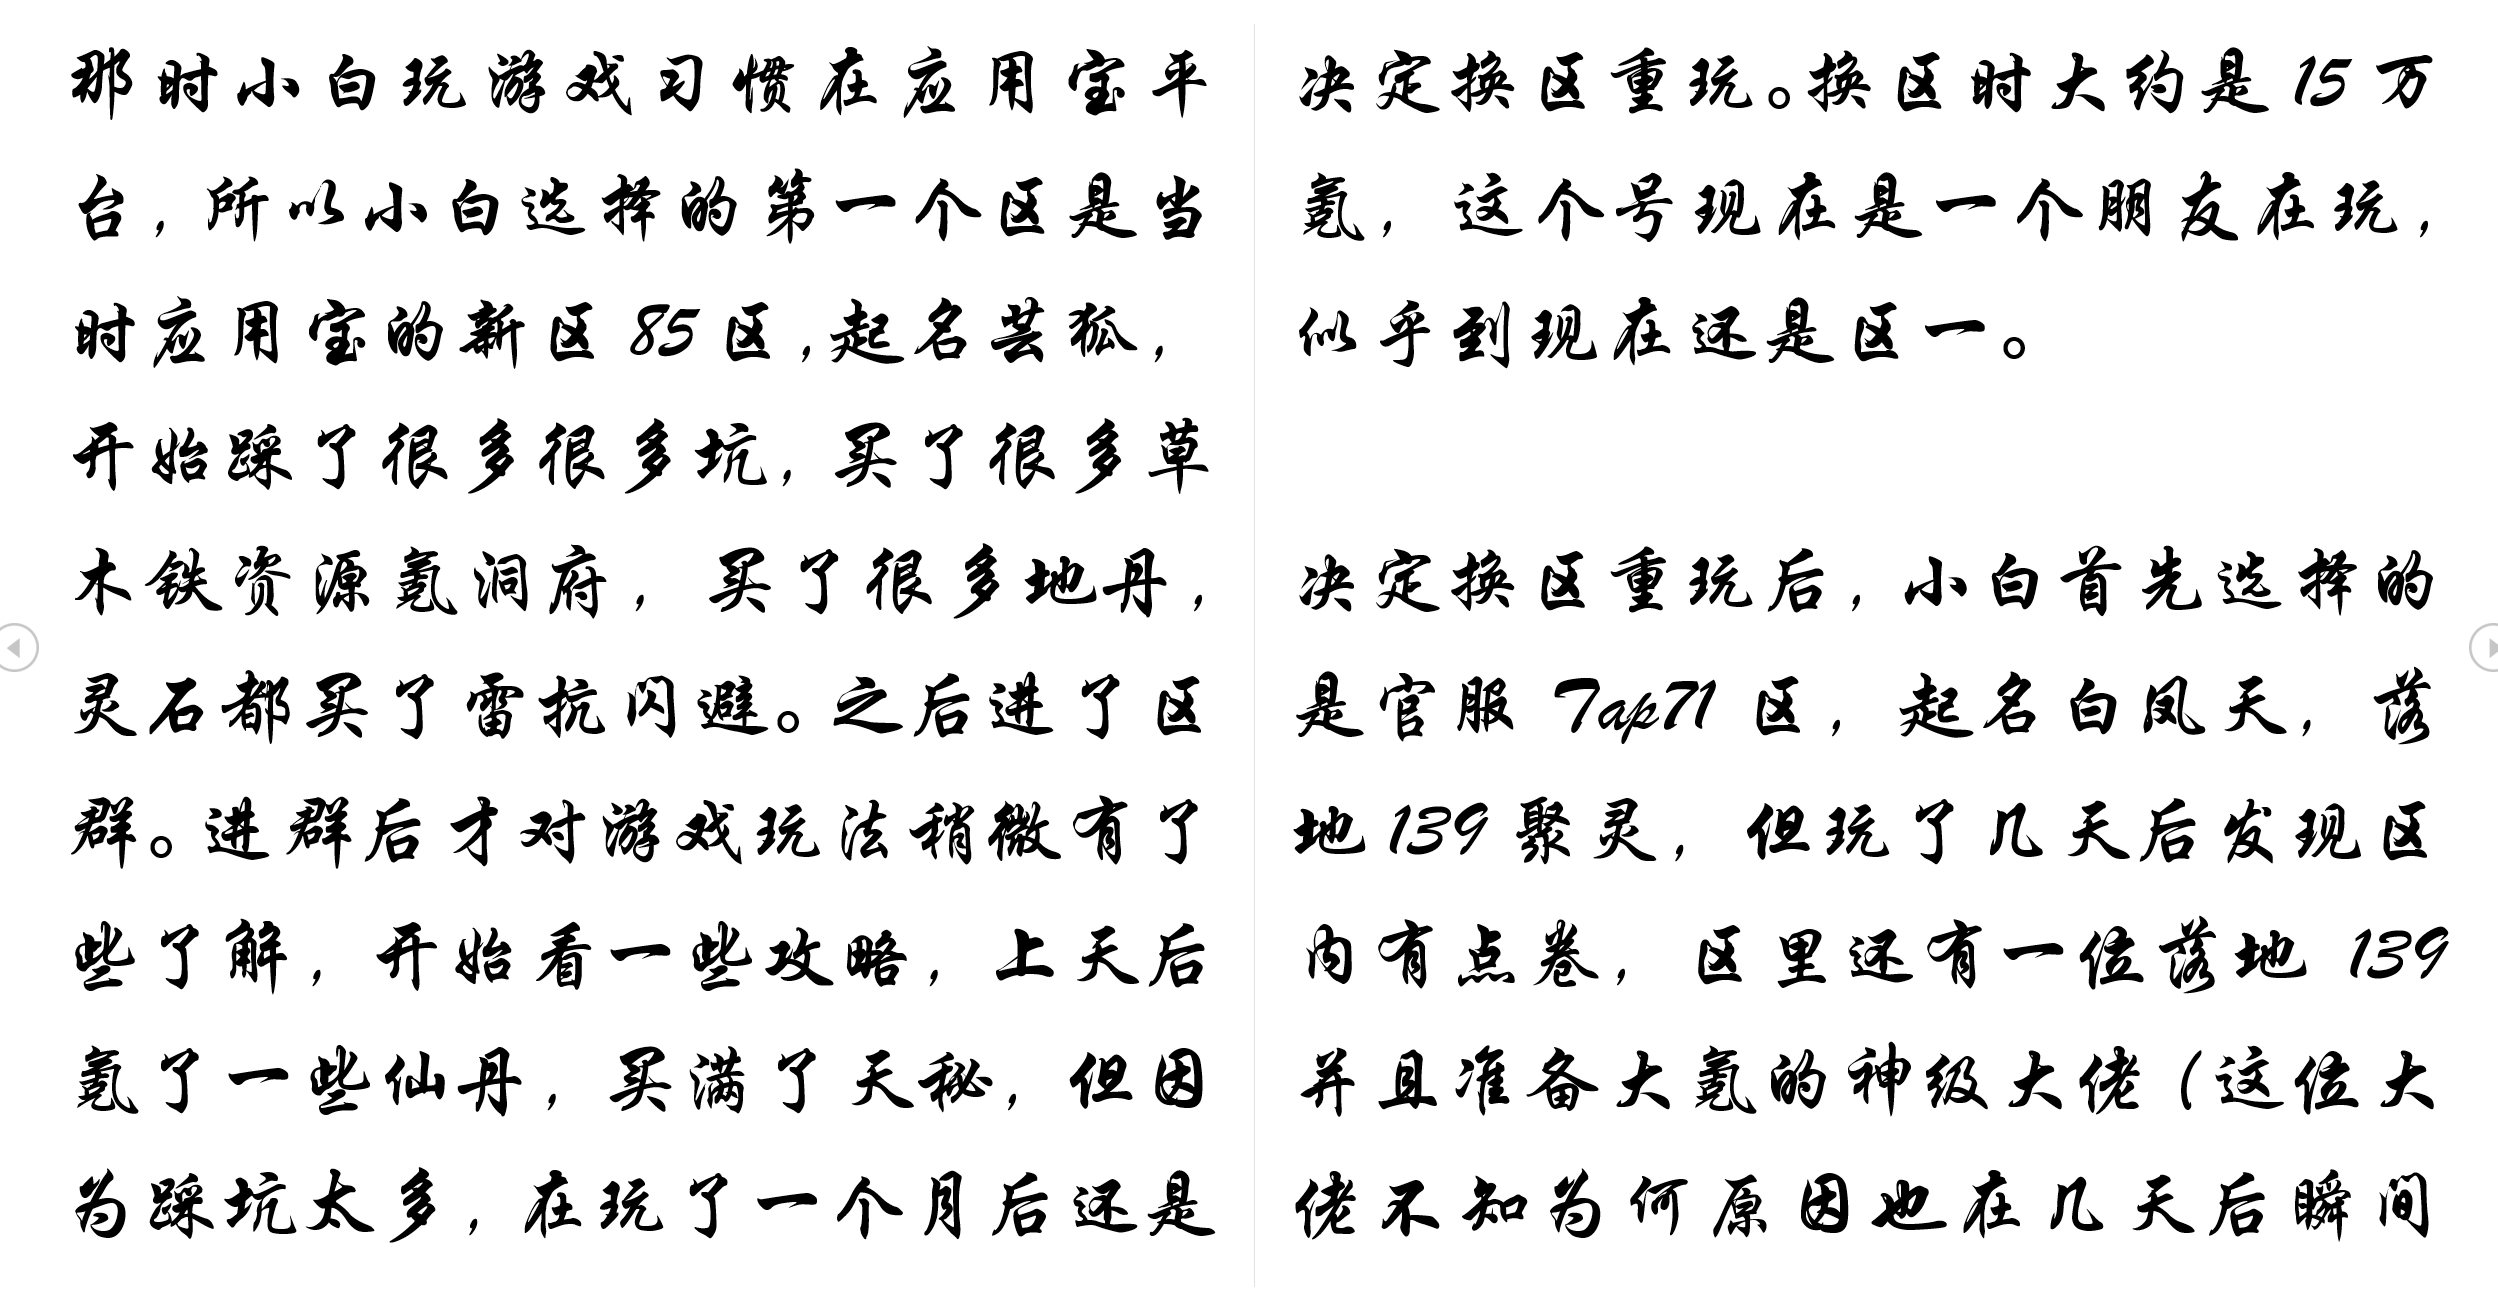 那时小白玩魔域习惯在应用宝平
台，所以小白选择的第一个区是当
时应用宝的新区85区，起名梦弥，
开始踩了很多很多坑，买了很多草
木铁资源氪洞府，买了很多地丹，
灵石前买了雷抗闪避。之后进了区
群。进群后才对魔域玩法稍微有了
些了解，开始看一些攻略，上天后
氪了一些仙丹，买满了天秘，但因
为踩坑太多，在玩了一个月后还是
决定换区重玩。换区时大约是15万
氪，这个号现在是一个朋友在玩，
似乎到现在还是区一。
决定换区重玩后，小白首先选择的
是官服Tap71区，起名白凤天，落
地139聚灵，但玩了几天后发现区
内有三卷，区里还有一位落地139
并且准备大氪的神级大佬（这位大
佬不知为何原因地在几天后瞬间